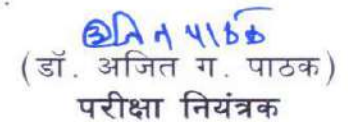 अजित पाठक
(डॉ. अजित ग. पाठक)
परीक्षा नियंत्रक